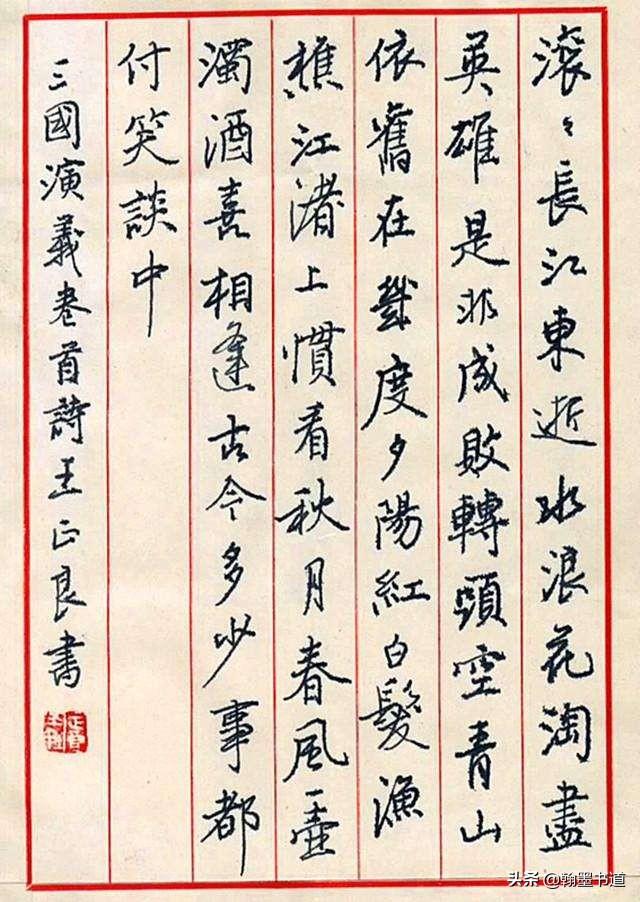 滚々長江東逝水浪花淘盡
英雄是非成敗轉頭空青山
依舊在幾度夕陽紅白髮漁
樵江渚上慣看秋月春風一壺
濁酒喜相逢古今多少事都
付笑談中
三國演義卷首詩王正良書
头条@翰墨书道